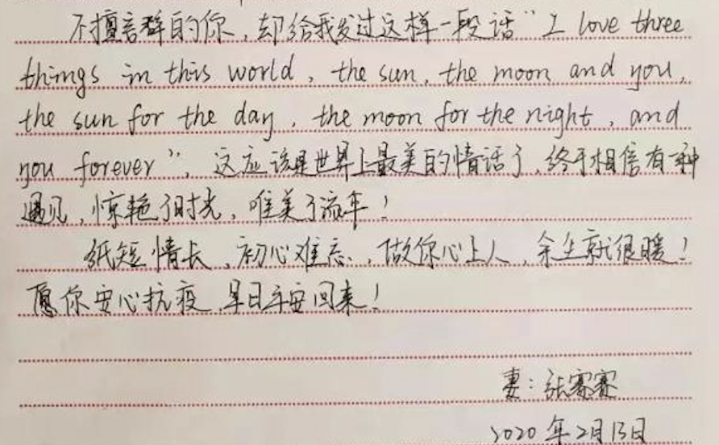 不擅言辞的你，却给我发过这样一段话“I love three
things in this world, the sun, the moon and you,
the sun for the day, the moon for the night, and
you forever”，这应该是世界上最美的情话了，终于相信有一种
遇见，惊艳了时光，唯美了流年！
纸短情长，初心难忘，做你心上人，余生就很暖！
愿你安心抗疫，早日平安回来！
妻：张赛赛
2020年2月13日